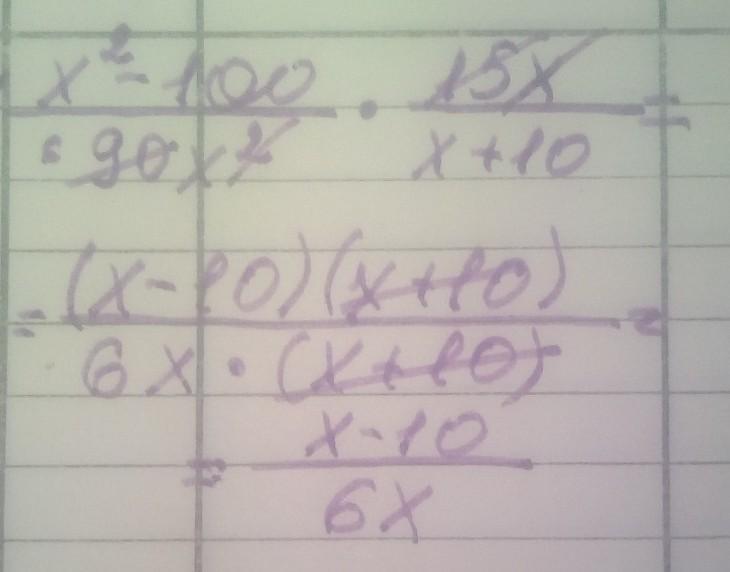 x² - 100 / 6 90x² · 15x / x + 10 =
= (x - 10)(x + 10) / 6x · (x + 10) =
= x - 10 / 6x